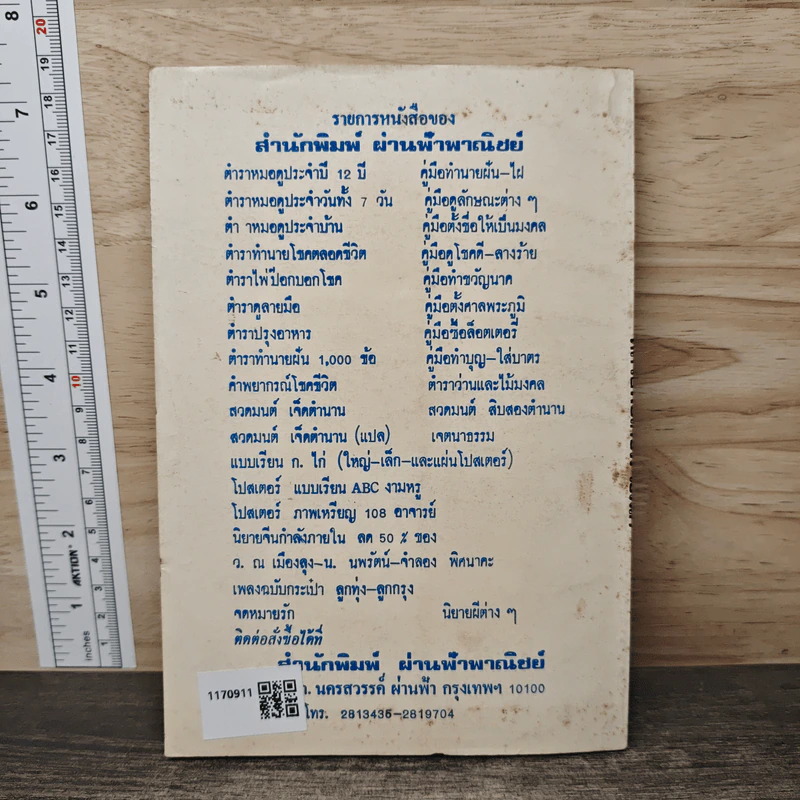 รายการหนังสือของ
สำนักพิมพ์ ผ่านฟ้าพาณิชย์
ตำราหมอดูประจำปี 12 ปี คู่มือทำนายฝัน-ไฝ
ตำราหมอดูประจำวันทั้ง 7 วัน คู่มือดูลักษณะต่าง ๆ
ตำ าหมอดูประจำบ้าน คู่มือตั้งชื่อให้เป็นมงคล
ตำราทำนายโชคตลอดชีวิต คู่มือดูโชคดี-ลางร้าย
ตำราไพ่ป๊อกบอกโชค คู่มือทำขวัญนาค
ตำราดูลายมือ คู่มือตั้งศาลพระภูมิ
ตำราปรุงอาหาร คู่มือซื้อล็อตเตอรี่
ตำราทำนายฝัน 1,000 ข้อ คู่มือทำบุญ-ใส่บาตร
คำพยากรณ์โชคชีวิต ตำราว่านและไม้มงคล
สวดมนต์ เจ็ดตำนาน สวดมนต์ สิบสองตำนาน
สวดมนต์ เจ็ดตำนาน (แปล) เจตนาธรรม
แบบเรียน ก. ไก่ (ใหญ่-เล็ก-และแผ่นโปสเตอร์)
โปสเตอร์ แบบเรียน ABC งามหรู
โปสเตอร์ ภาพเหรียญ 108 อาจารย์
นิยายจีนกำลังภายใน ลด 50 % ของ
ว. ณ เมืองลุง-น. นพรัตน์-จำลอง พิศนาคะ
เพลงฉบับกระเป๋า ลูกทุ่ง-ลูกกรุง
จดหมายรัก นิยายผีต่าง ๆ
ติดต่อสั่งซื้อได้ที่
สำนักพิมพ์ ผ่านฟ้าพาณิชย์
ถ. นครสวรรค์ ผ่านฟ้า กรุงเทพฯ 10100
โทร. 2813435-2819704
1170911
AKTION
inches
1 2 3 4 5 6 7 8
1 2 3 4 5 6 7 8 9 10 11 12 13 14 15 16 17 18 19 20